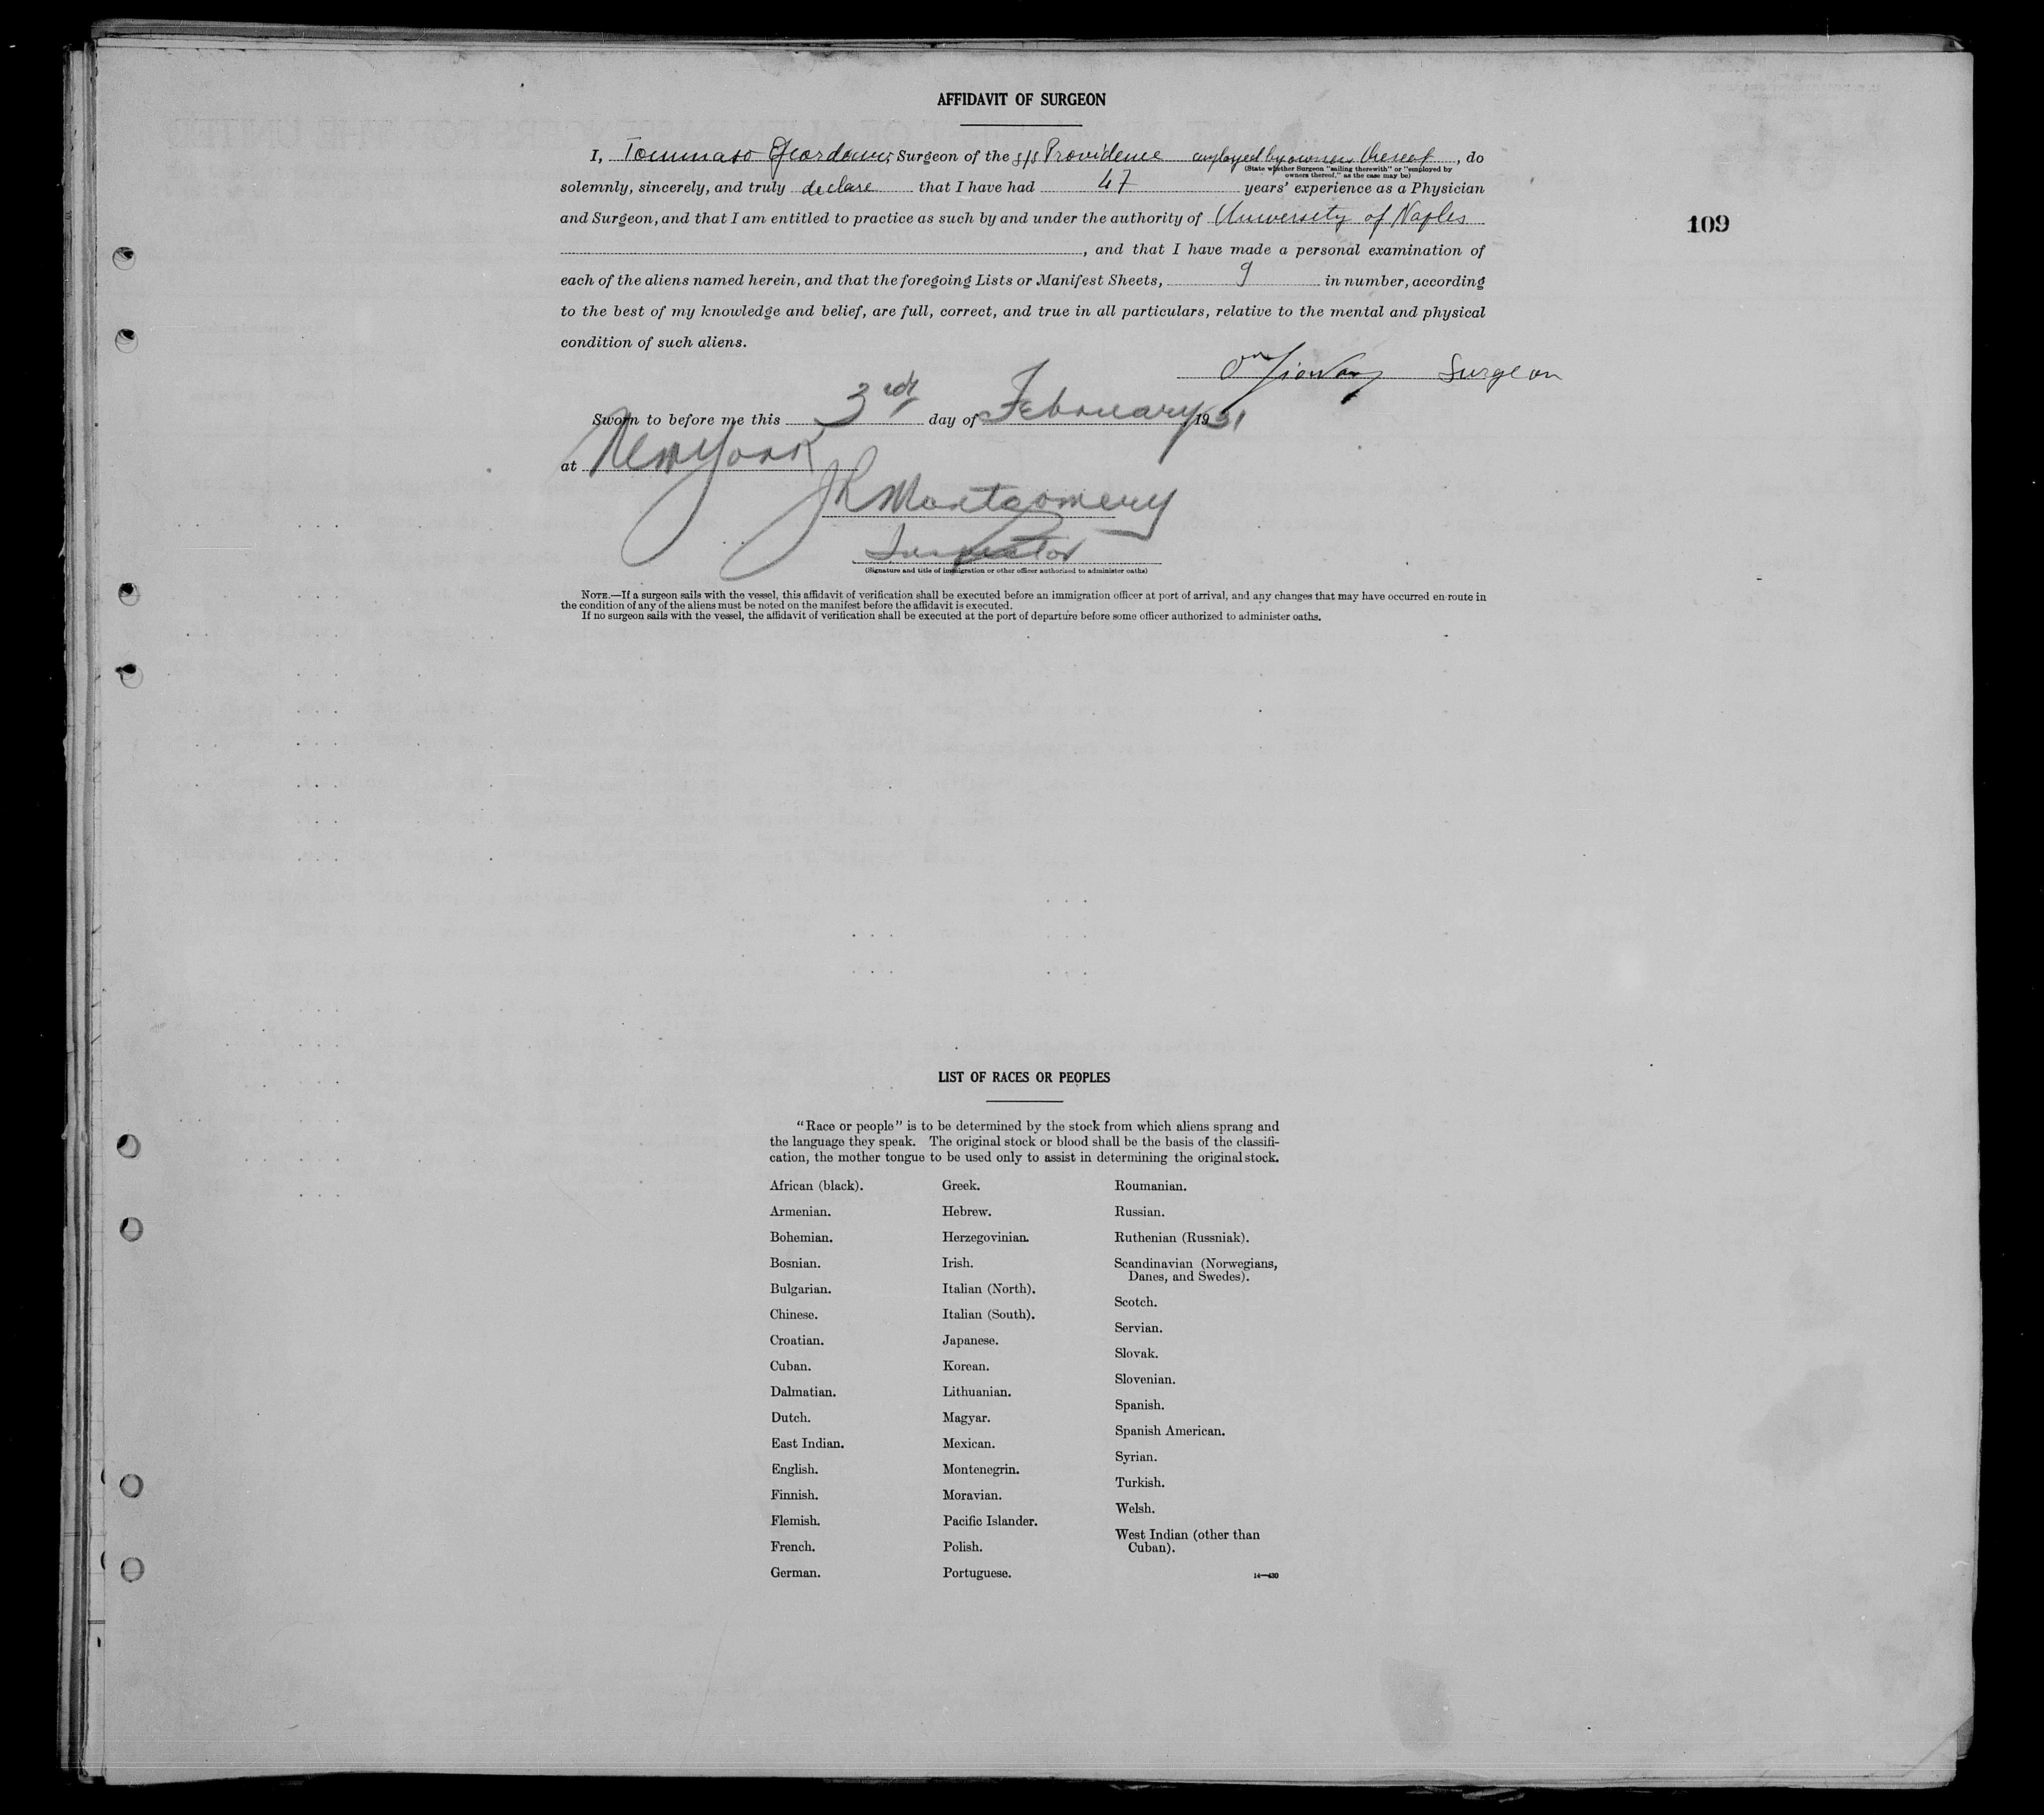 AFFIDAVIT OF SURGEON
I, Tommaso Giordano, Surgeon of the s/s Providence employed by owners thereof, do
(State whether Surgeon "sailing therewith" or "employed by
owners thereof," as the case may be)
solemnly, sincerely, and truly declare that I have had 47 years' experience as a Physician
and Surgeon, and that I am entitled to practice as such by and under the authority of University of Naples
109
, and that I have made a personal examination of
each of the aliens named herein, and that the foregoing Lists or Manifest Sheets, 9 in number, according
to the best of my knowledge and belief, are full, correct, and true in all particulars, relative to the mental and physical
condition of such aliens.
Surgeon
Sworn to before me this 3rd day of February, 1931
at New York
JR Montgomery
Inspector
(Signature and title of immigration or other officer authorized to administer oaths)
NOTE.—If a surgeon sails with the vessel, this affidavit of verification shall be executed before an immigration officer at port of arrival, and any changes that may have occurred en route in
the condition of any of the aliens must be noted on the manifest before the affidavit is executed.
If no surgeon sails with the vessel, the affidavit of verification shall be executed at the port of departure before some officer authorized to administer oaths.
LIST OF RACES OR PEOPLES
"Race or people" is to be determined by the stock from which aliens sprang and
the language they speak. The original stock or blood shall be the basis of the classifi-
cation, the mother tongue to be used only to assist in determining the original stock.
African (black).
Armenian.
Bohemian.
Bosnian.
Bulgarian.
Chinese.
Croatian.
Cuban.
Dalmatian.
Dutch.
East Indian.
English.
Finnish.
Flemish.
French.
German.
Greek.
Hebrew.
Herzegovinian.
Irish.
Italian (North).
Italian (South).
Japanese.
Korean.
Lithuanian.
Magyar.
Mexican.
Montenegrin.
Moravian.
Pacific Islander.
Polish.
Portuguese.
Roumanian.
Russian.
Ruthenian (Russniak).
Scandinavian (Norwegians,
Danes, and Swedes).
Scotch.
Servian.
Slovak.
Slovenian.
Spanish.
Spanish American.
Syrian.
Turkish.
Welsh.
West Indian (other than
Cuban).
14—430